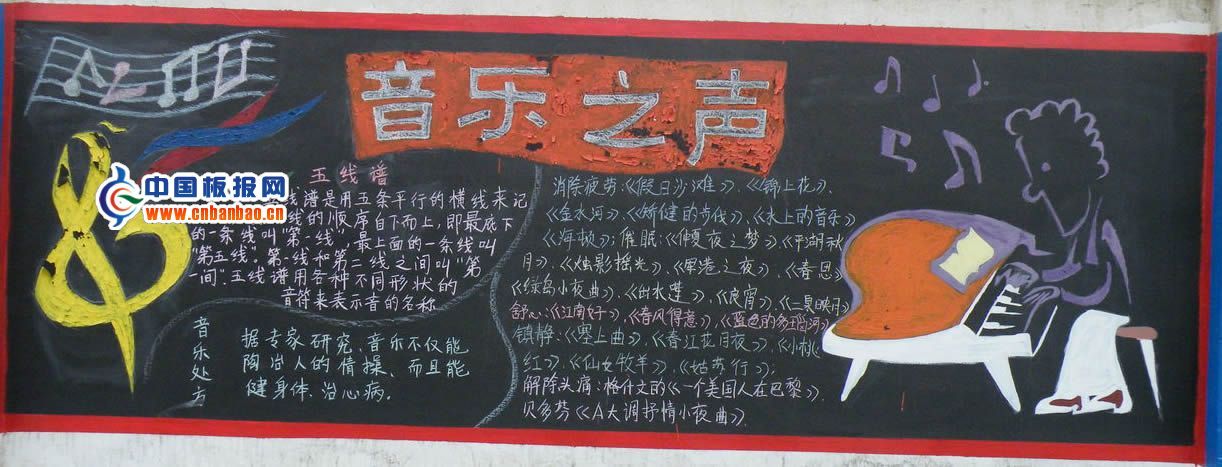 音乐之声
中国板报网
www.cnbanbao.cn
五线谱
线谱是用五条平行的横线来记
线的顺序自下而上,即最底下
的一条线叫"第一线",最上面的一条线叫
"第五线"。第一线和第二线之间叫"第
一间"五线谱用各种不同形状的
音符来表示音的名称
音乐处方
据专家研究、音乐不仅能
陶冶人的情操、而且能
健身体、治心病。
消除疲劳:《假日沙滩》、《锦上花》、
《金水河》、《矫健的步伐》、《水上的音乐》
《海顿》;催眠:《仲夏夜之梦》、《平湖秋
月》、《烛影摇光》、《军港之夜》、《春思》
《绿岛小夜曲》、《出水莲》、《良宵》、《二泉映月》
舒心:《江南好》、《春风得意》、《蓝色的多瑙河》
镇静:《塞上曲》、《春江花月夜》、《小桃
红》、《仙女牧羊》、《姑苏行》;
解除头痛:格什文的《一个美国人在巴黎》、
贝多芬《A大调抒情小夜曲》、